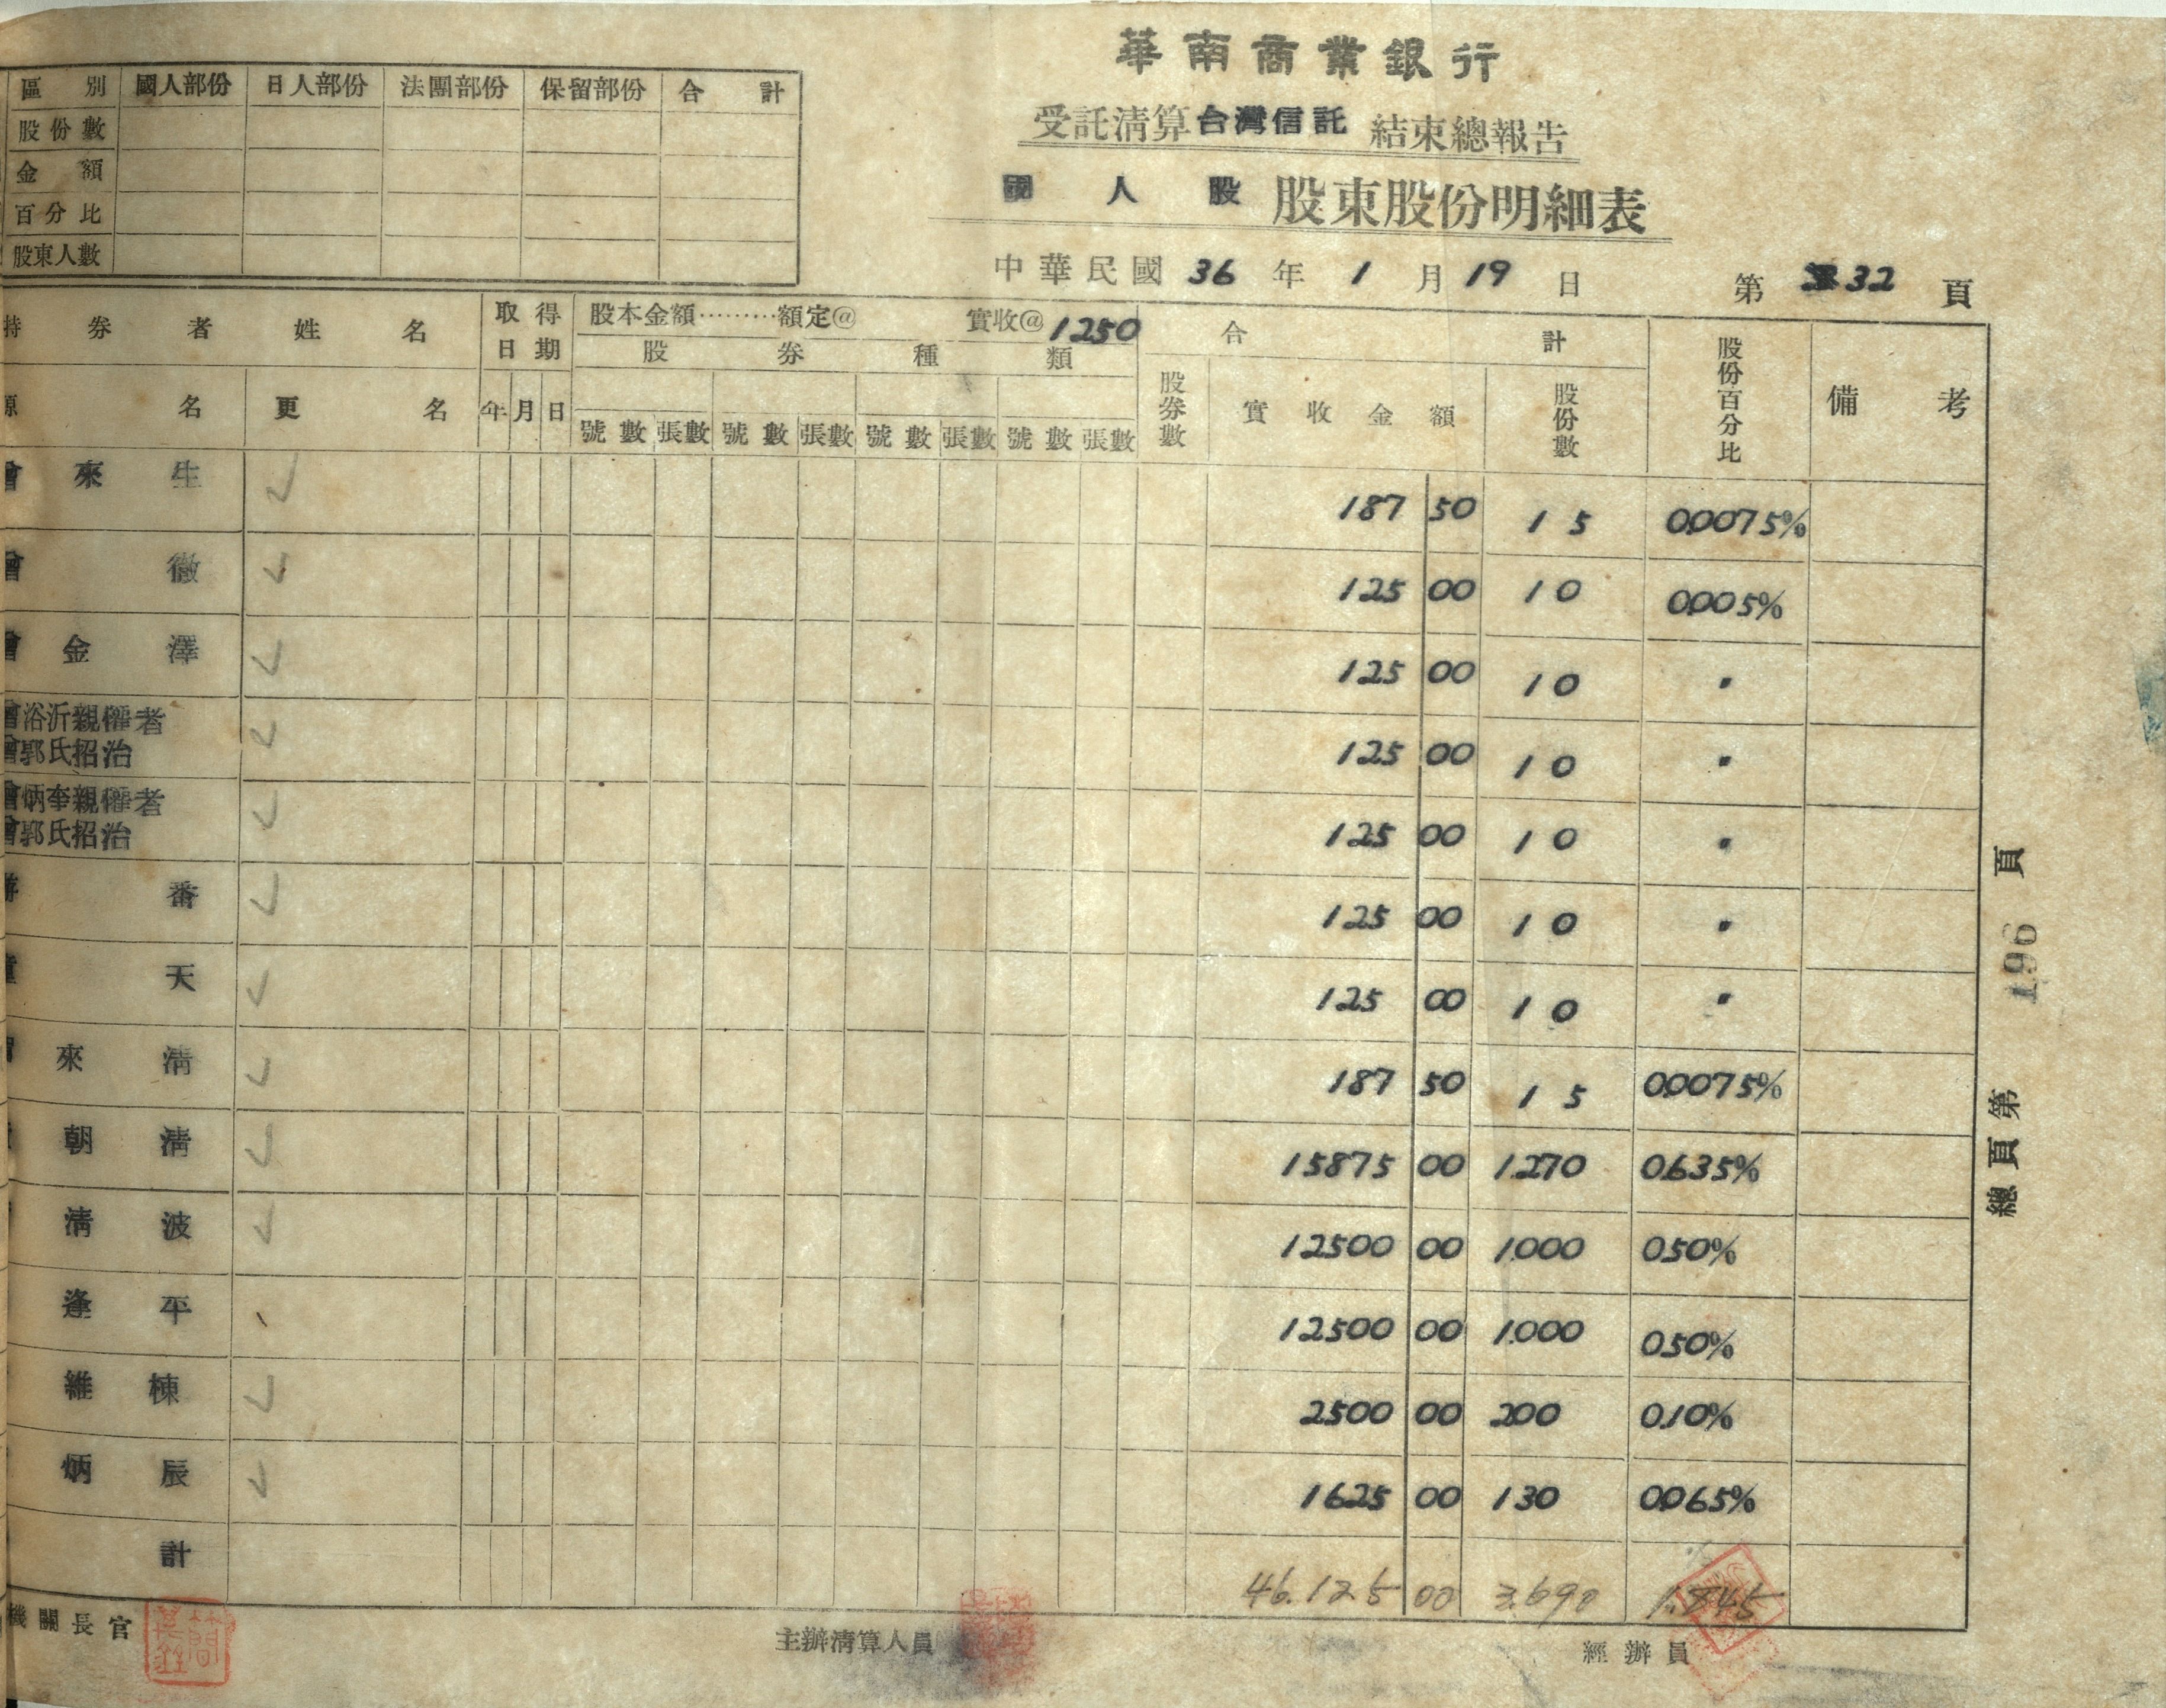 華南商業銀行
受託清算台灣信託結束總報告
國人股 股東股份明細表
中華民國 36 年 1 月 19 日 第 32 頁
區別 國人部份 日人部份 法團部份 保留部份 合計
股份數
金額
百分比
股東人數
持券者姓名 取得日期 股本金額………額定@ 實收@ 1250 合計 股份百分比 備考
股券種類
原名 更名 年 月 日 號數 張數 號數 張數 號數 張數 號數 張數 股券數 實收金額 股份數
曾來生 187 50 15 0.0075%
曾徹 125 00 10 0.005%
曾金澤 125 00 10 〃
曾浴沂親權者
曾郭氏招治 125 00 10 〃
曾炳奎親權者
曾郭氏招治 125 00 10 〃
游番 125 00 10 〃
童天 125 00 10 〃
來清 187 50 15 0.0075%
朝清 15875 00 1.270 0.635%
清波 12500 00 1.000 0.50%
逢平 12500 00 1.000 0.50%
維棟 2500 00 200 0.10%
炳辰 1625 00 130 0.065%
計 46.125 00 3.690 1.845
機關長官 主辦清算人員 經辦員
總頁第 196 頁